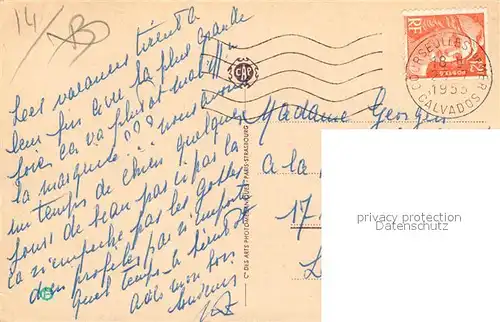 14/
Les vacances tirent à
leur fin avec la plus grande
joie ça va plus mal !!!
la marquise ??? nous avons
un temps de chien quelques
jours de beau pas ici par la
ça n'empêche pas les gosses
d'en profiter par n'importe
quel temps - à bientôt
mon bon
souvenir
Cie DES ARTS PHOTOMÉCANIQUES - PARIS-STRASBOURG
CAP
RF
12F
POSTES
COURSEULLES S MER
18 H
1955
CALVADOS
Madame Georges
à la
17
privacy protection
Datenschutz